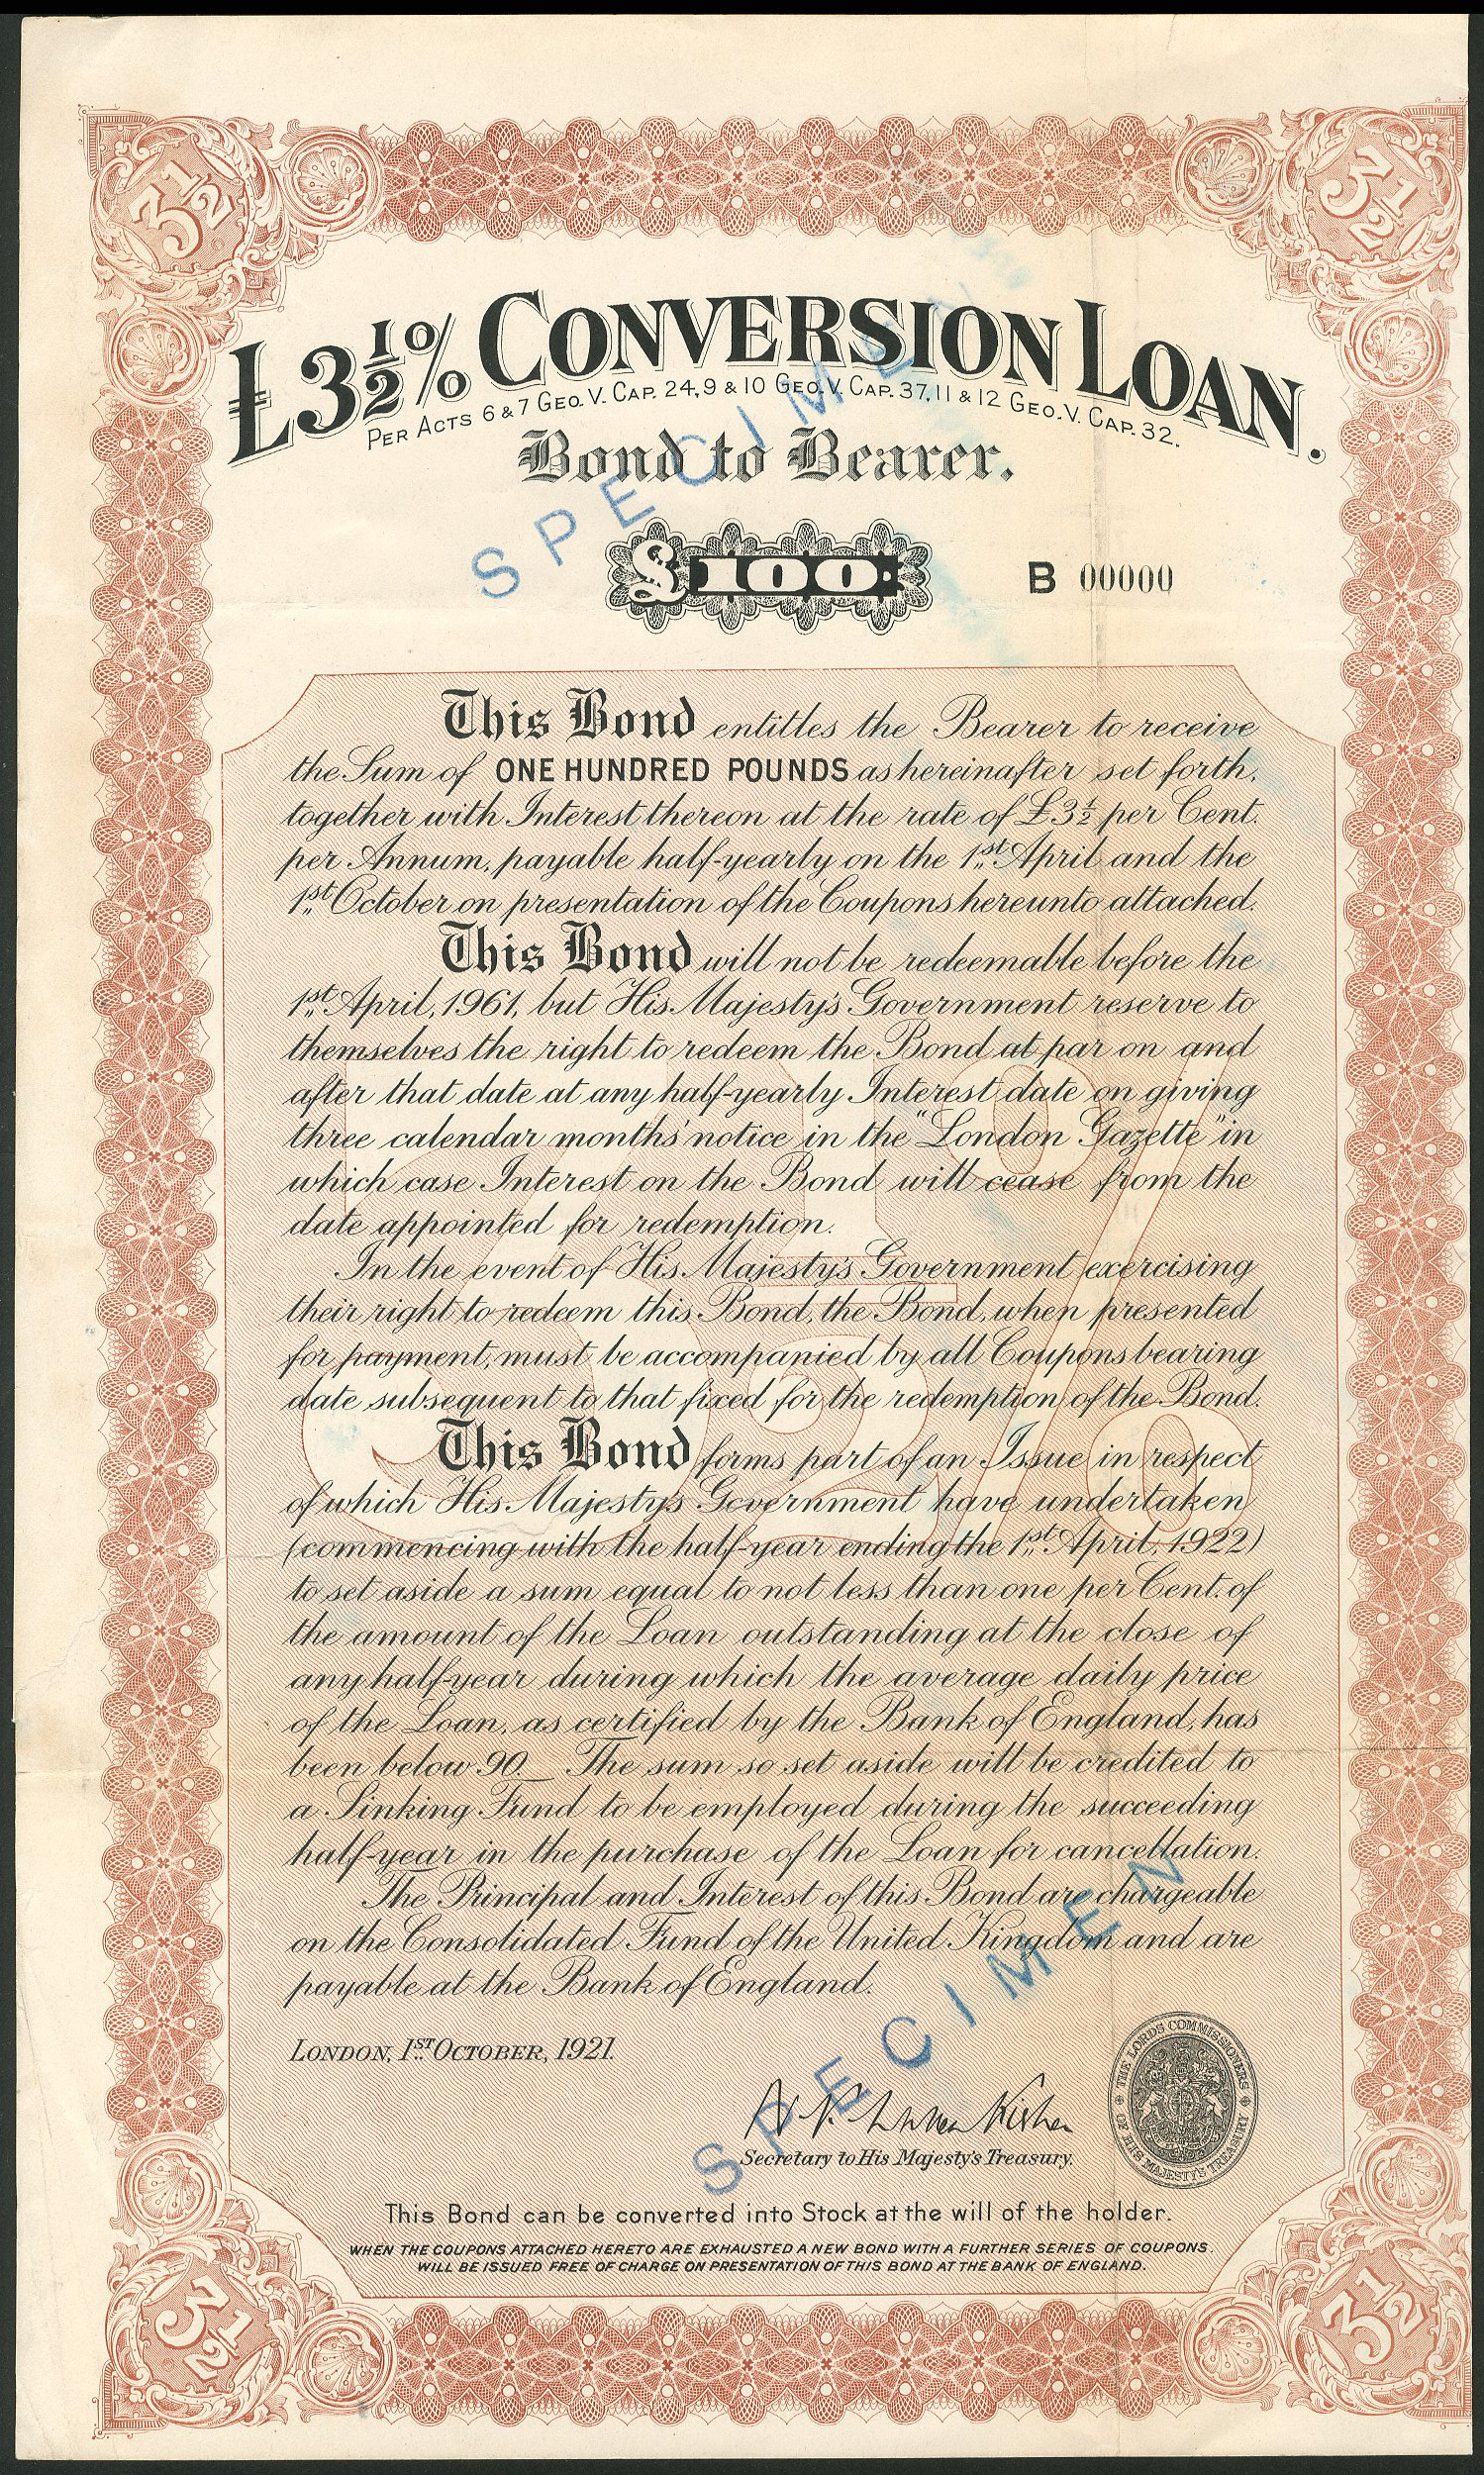 3½ 3½
£3½% CONVERSION LOAN.
PER ACTS 6 & 7 GEO. V. CAP. 24, 9 & 10 GEO. V. CAP. 37, 11 & 12 GEO. V. CAP. 32.
Bond to Bearer.
SPECIMEN
£100: B 00000
This Bond entitles the Bearer to receive
the Sum of ONE HUNDRED POUNDS as hereinafter set forth,
together with Interest thereon at the rate of £3½ per Cent.
per Annum, payable half-yearly on the 1st April and the
1st October on presentation of the Coupons hereunto attached.
This Bond will not be redeemable before the
1st April, 1961, but His Majesty's Government reserve to
themselves the right to redeem the Bond at par on and
after that date at any half-yearly Interest date on giving
three calendar months' notice in the "London Gazette" in
which case Interest on the Bond will cease from the
date appointed for redemption.
In the event of His Majesty's Government exercising
their right to redeem this Bond, the Bond, when presented
for payment, must be accompanied by all Coupons bearing
date subsequent to that fixed for the redemption of the Bond.
3½%
This Bond forms part of an Issue in respect
of which His Majesty's Government have undertaken
(commencing with the half-year ending the 1st April, 1922)
to set aside a sum equal to not less than one per Cent. of
the amount of the Loan outstanding at the close of
any half-year during which the average daily price
of the Loan, as certified by the Bank of England, has
been below 90. The sum so set aside will be credited to
a Sinking Fund to be employed during the succeeding
half-year in the purchase of the Loan for cancellation.
The Principal and Interest of this Bond are chargeable
on the Consolidated Fund of the United Kingdom and are
payable at the Bank of England.
SPECIMEN
LONDON, 1ST OCTOBER, 1921.
THE LORDS COMMISSIONERS OF HIS MAJESTY'S TREASURY
Secretary to His Majesty's Treasury.
This Bond can be converted into Stock at the will of the holder.
WHEN THE COUPONS ATTACHED HERETO ARE EXHAUSTED A NEW BOND WITH A FURTHER SERIES OF COUPONS
WILL BE ISSUED FREE OF CHARGE ON PRESENTATION OF THIS BOND AT THE BANK OF ENGLAND.
3½ 3½